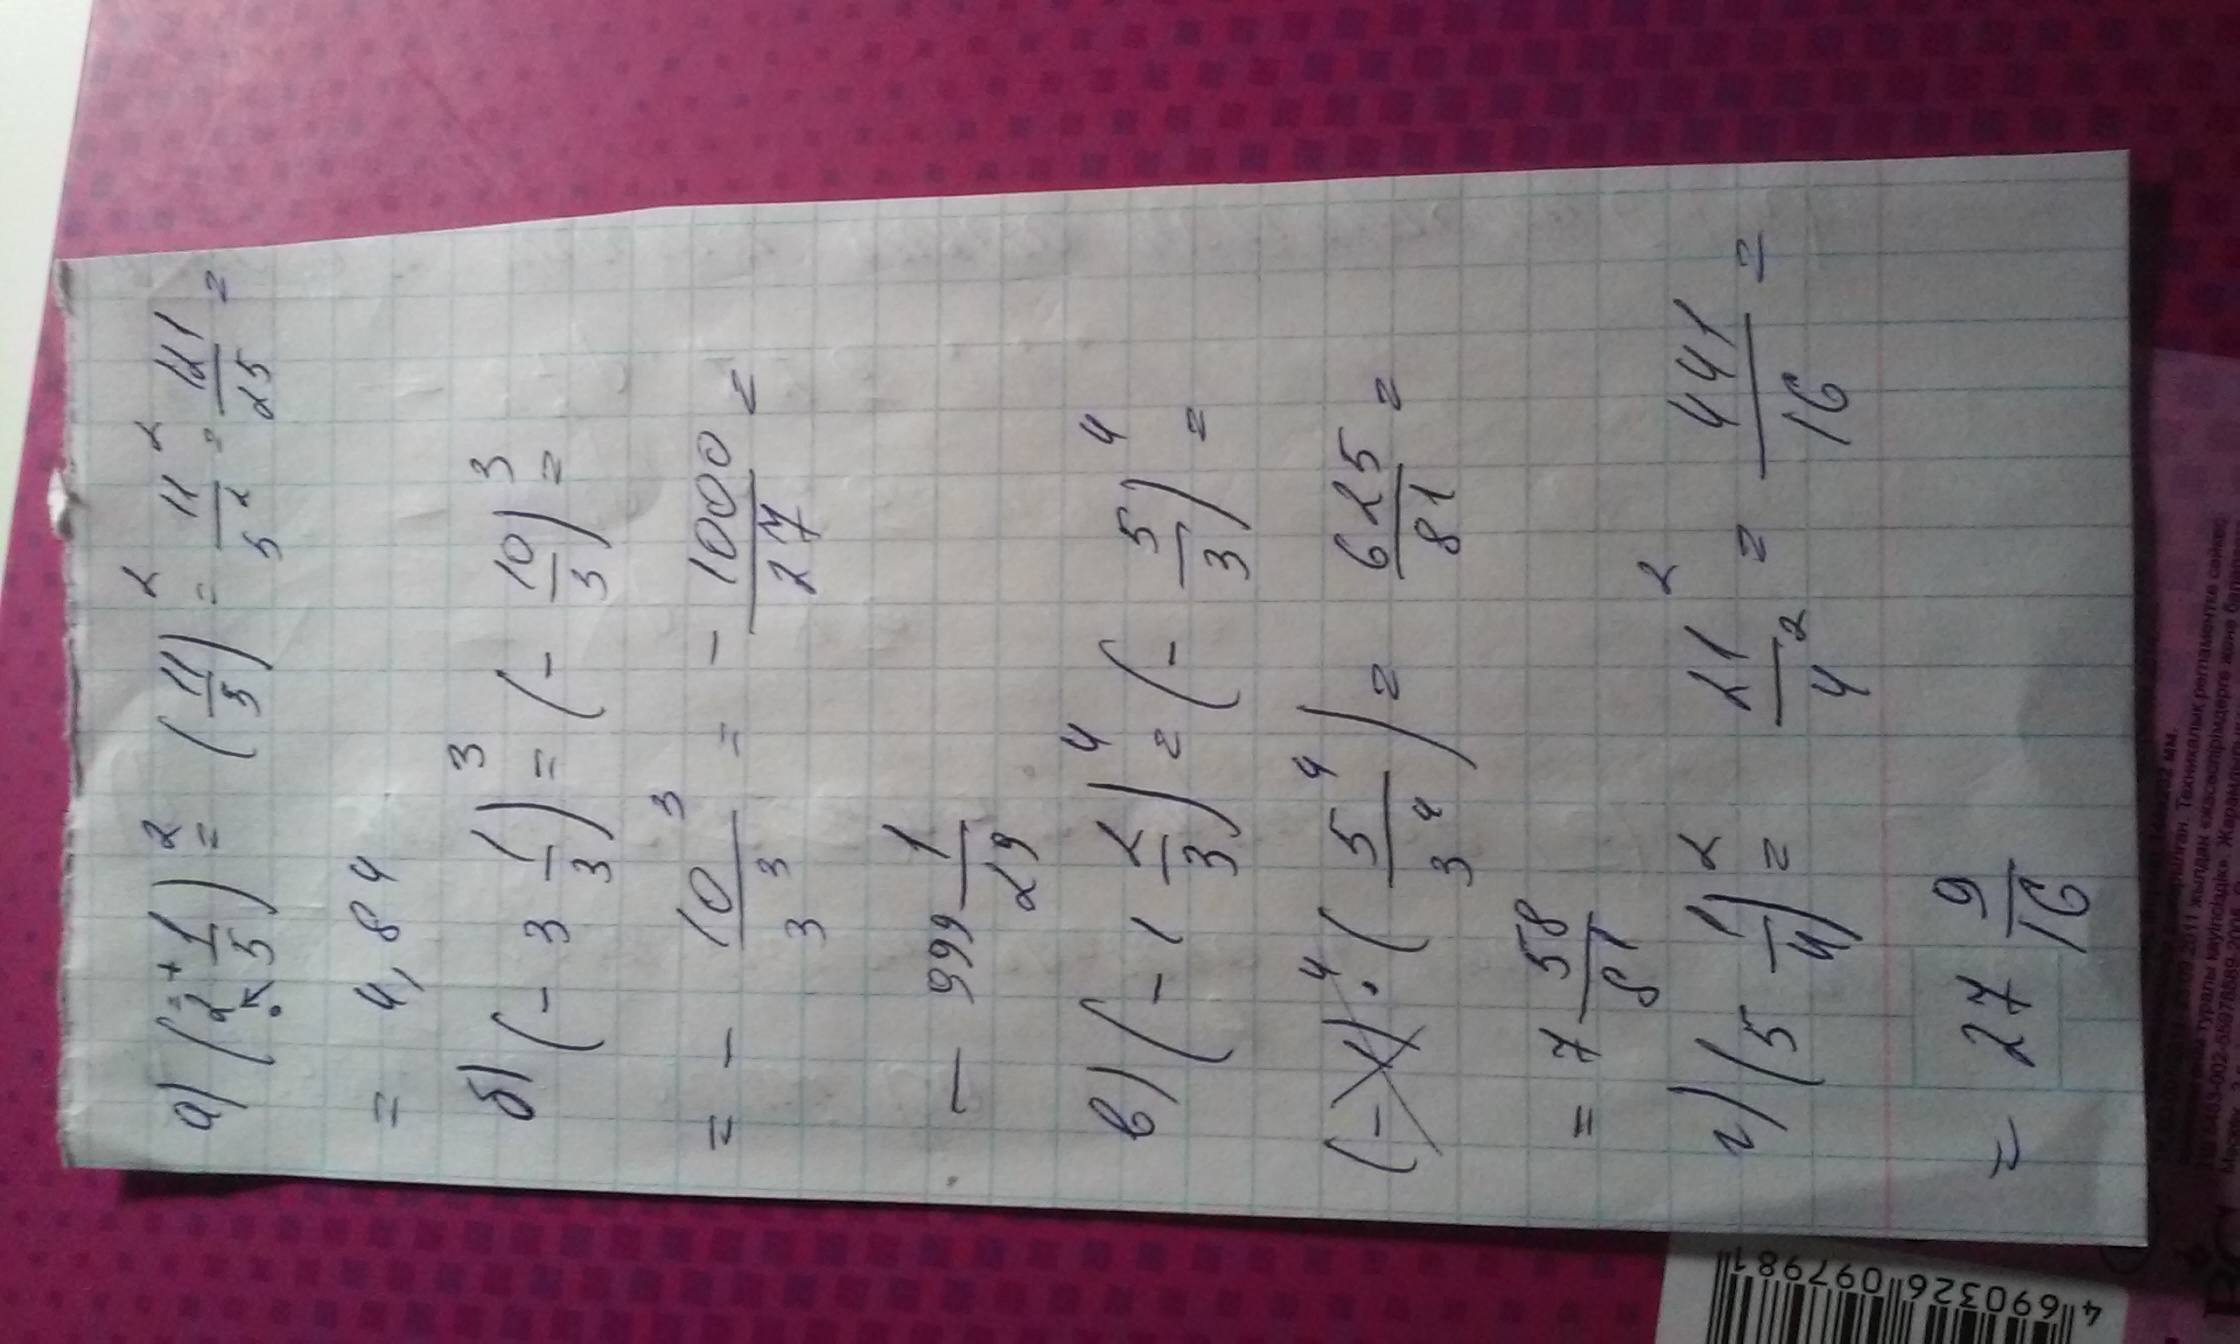 а) (2 1/5)² = (11/5)² = 11²/5² = 121/25 =
= 4,84
б) (-3 1/3)³ = (-10/3)³ =
= - 10³/3³ = - 1000/27 =
- 999 1/29
в) (-1 2/3)⁴ = (-5/3)⁴ =
(-1)⁴ · (5⁴/3⁴) = 625/81 =
= 7 58/81
г) (5 1/4)² = 21²/4² = 441/16 =
= 27 9/16
4 690326 097981